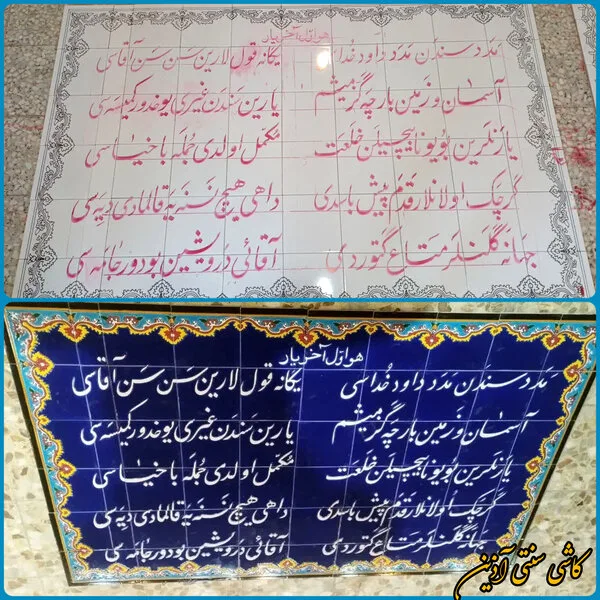 هو اول آخر یار
مدد سندن مدد داود خداسی یگانه قول لارین سن سن آقاسی
آسمان و زمین بارچه گرمیشم یارین سندن غیری یوخدور کیمسه سی
یارنکرین بویونا بیچیلن خلعت مکمل اولدی جمله باخیاسی
گرچک اولانلار قدم پیش باسدی داهی هیچ نسنیه قالمادی دیه سی
جهانه گلنلر متاع گتوردی آقائی درویشین بودور جامه سی
هو اول آخر یار
مدد سندن مدد داود خداسی یگانه قول لارین سن سن آقاسی
آسمان و زمین بارچه گرمیشم یارین سندن غیری یوخدور کیمسه سی
یارنکرین بویونا بیچیلن خلعت مکمل اولدی جمله باخیاسی
گرچک اولانلار قدم پیش باسدی داهی هیچ نسنیه قالمادی دیه سی
جهانه گلنلر متاع گتوردی آقائی درویشین بودور جامه سی
کاشی سنتی آذین